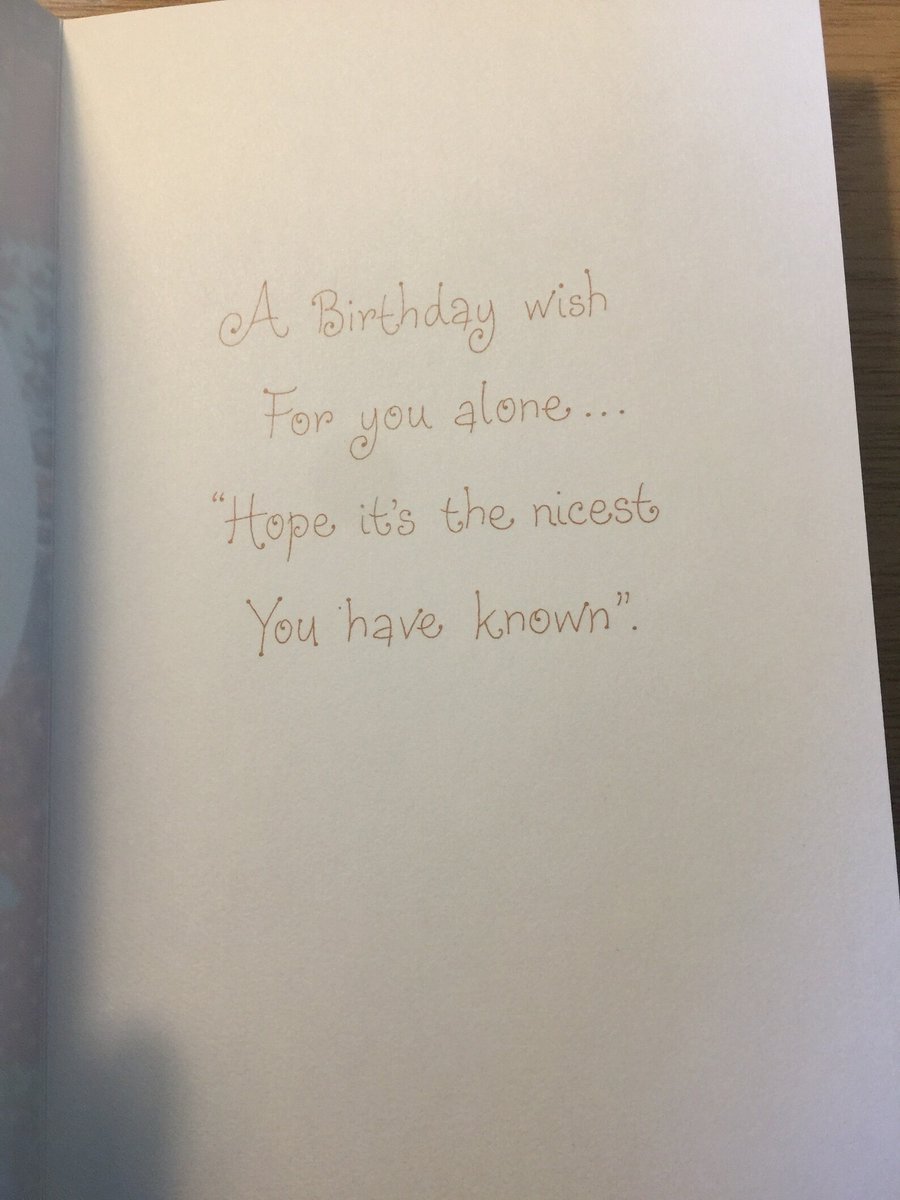 A Birthday wish
For you alone...
“Hope it's the nicest
You have known”.